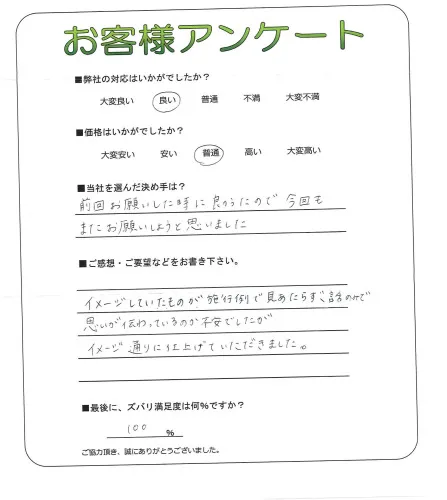 お客様アンケート
■弊社の対応はいかがでしたか？
大変良い 良い 普通 不満 大変不満
■価格はいかがでしたか？
大変安い 安い 普通 高い 大変高い
■当社を選んだ決め手は？
前回お願いした時に良かったので 今回も
またお願いしようと思いました
■ご感想・ご要望などをお書き下さい。
イメージしていたものが施行例で見あたらず 話のみで
思いが伝わっているのか不安でしたが
イメージ通りに仕上げていただきました。
■最後に、ズバリ満足度は何%ですか？
100 %
ご協力頂き、誠にありがとうございました。